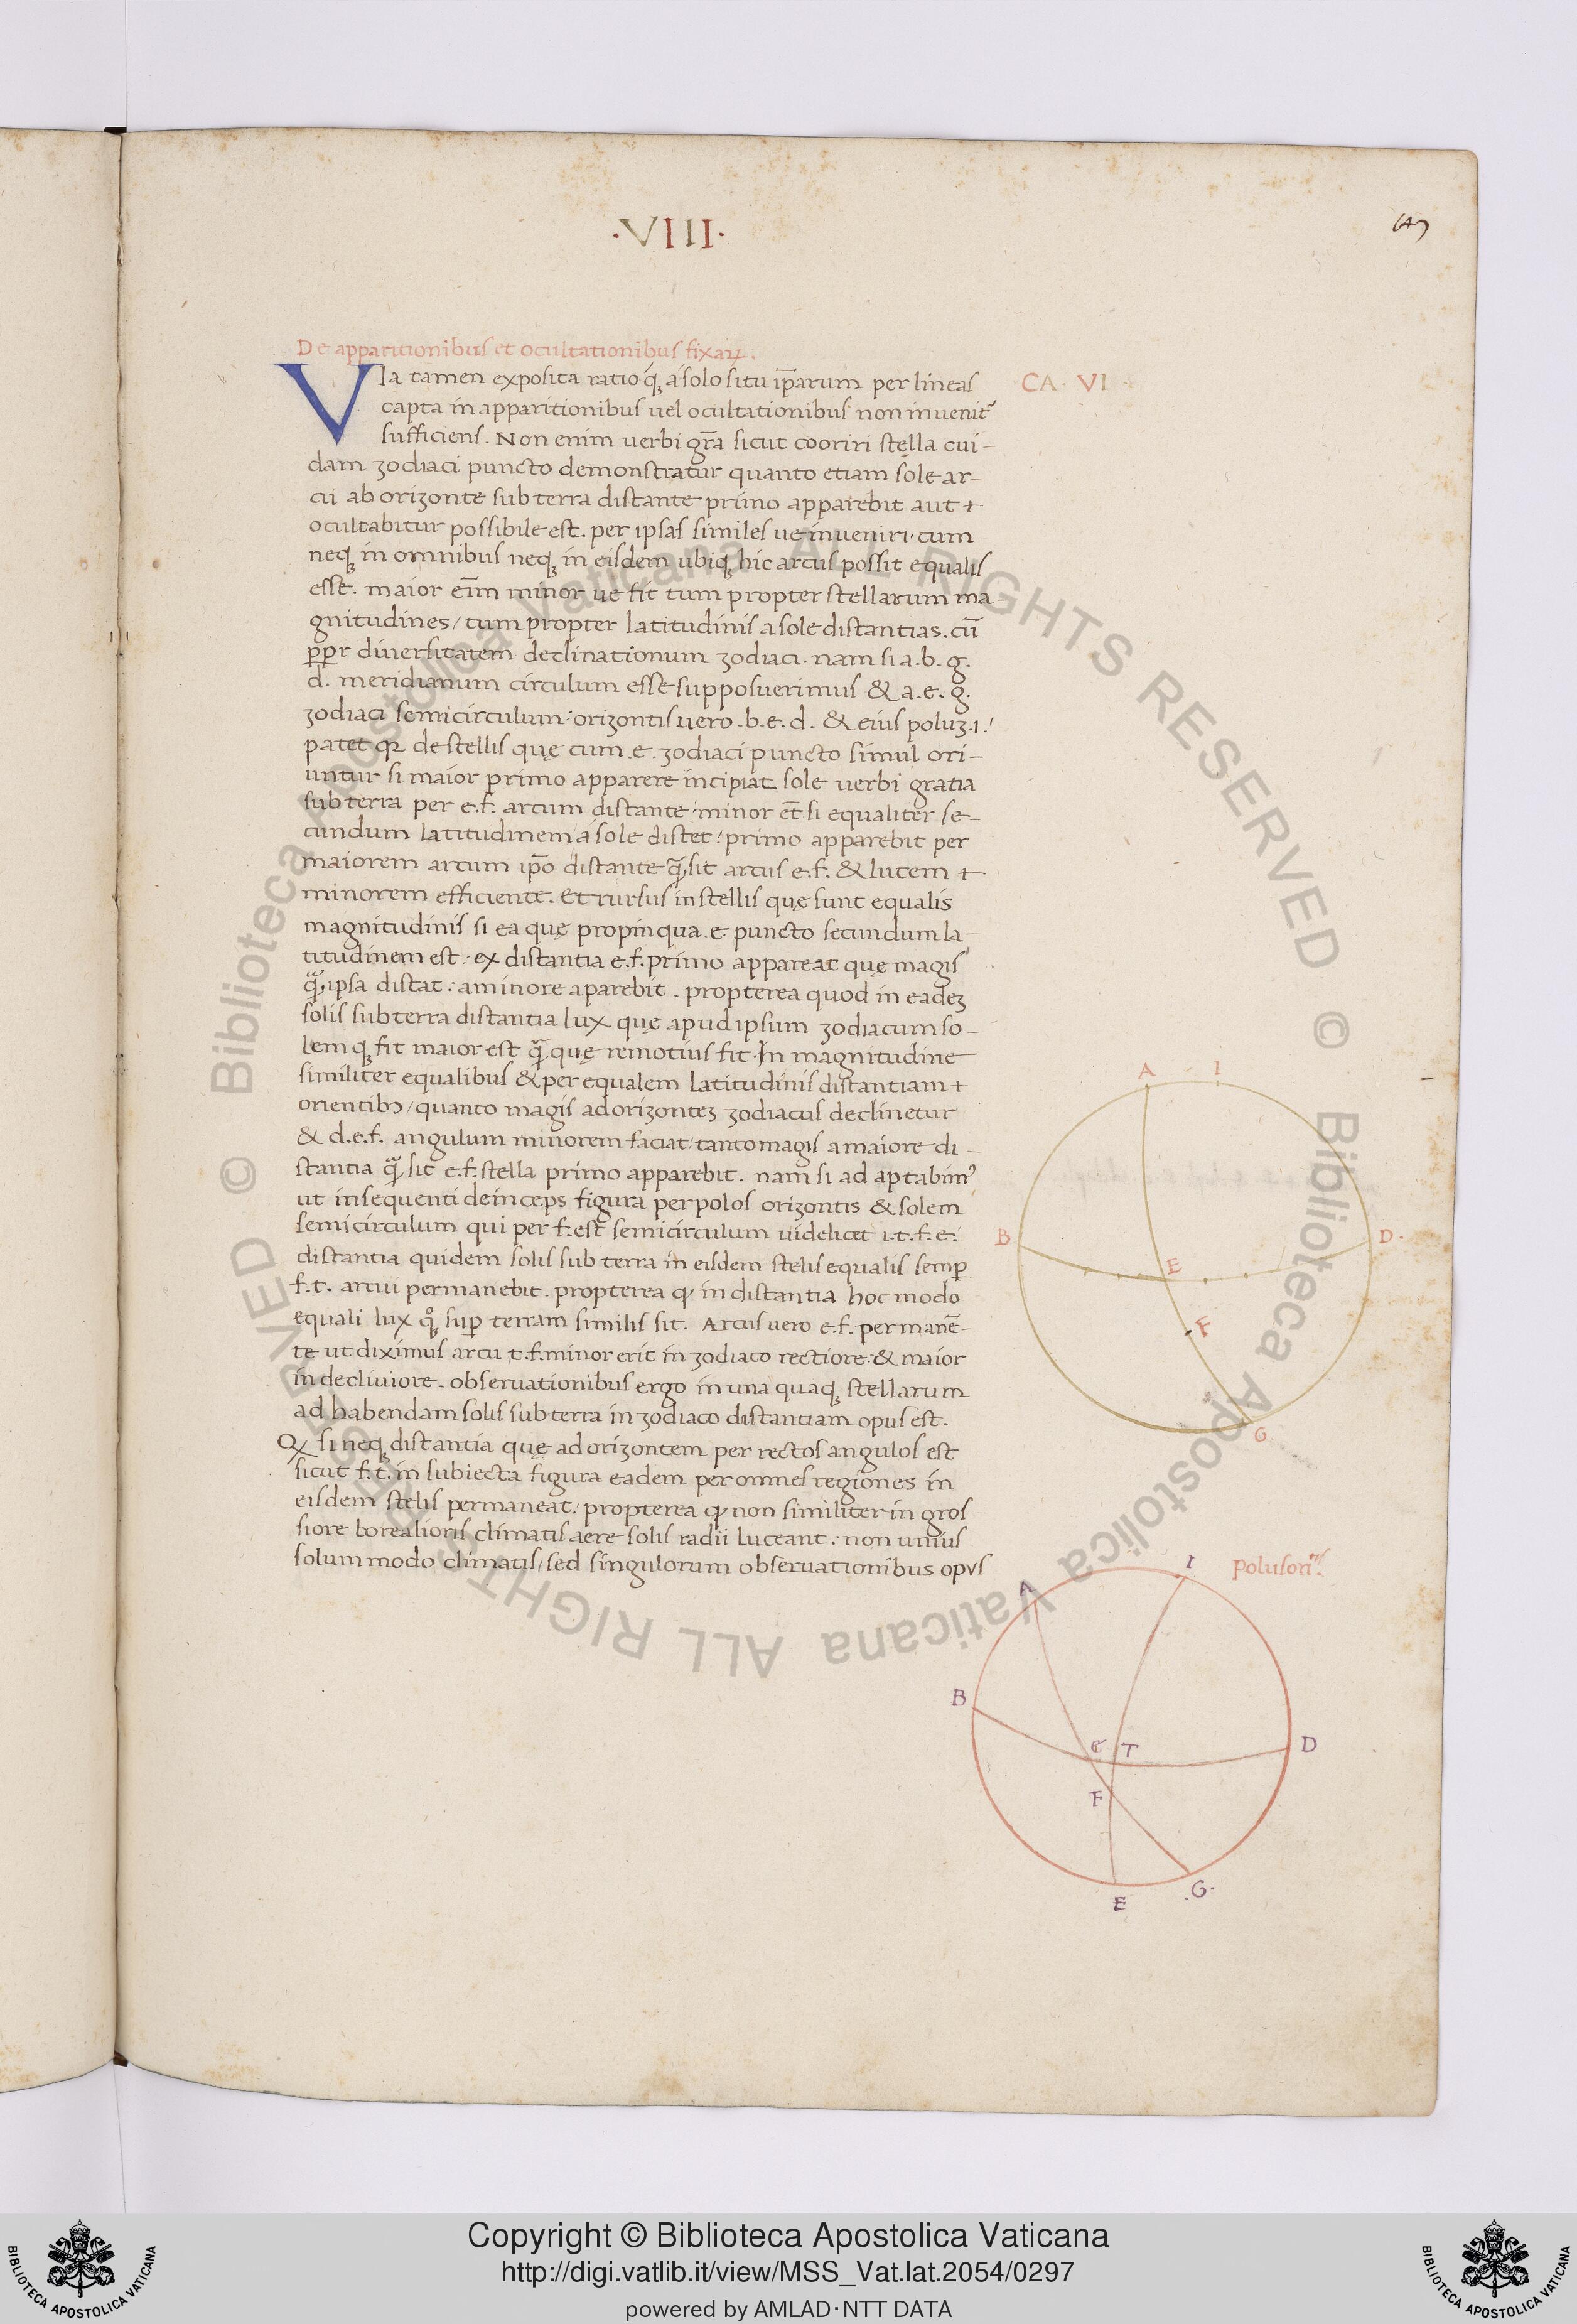 ·VIII·
De apparitionibus et ocultationibus fixaꝝ.
VIa tamen exposita ratio q́ꝫ á solo situ ip̄arum per lineas
CA· VI·
capta in apparitionibus uel ocultationibus non inuenit᷑
sufficiens. Non enim uerbi gr̄a sicut cooriri stella cui-
dam zodiaci puncto demonstratur quanto etiam sole ar-
cu ab orizonte sub terra distante primo apparebit aut +
ocultabitur possibile est. per ipsas similes ue inueniri. cum
neqꝫ in omnibus neqꝫ in eisdem ubiqꝫ hic arcus possit equalis
esse. maior eīm minor ue fit tum propter stellarum ma-
gnitudines/ tum propter latitudinis a sole distantias. cū
ꝓpr diuersitatem declinationum zodiaci. nam si a.b.g.
d. meridianum circulum esse supposuerimus & a.e.g.
zodiaci semicirculum: orizontis uero .b.e.d. & eius poluꝫ.i.
patet qꝛ de stellis quę cum .e. zodiaci puncto simul ori-
untur si maior primo apparere incipiat sole uerbi gratia
sub terra per e.f. arcum distante: minor et̄ si equaliter se-
cundum latitudinem á sole distet: primo apparebit per
maiorem arcum ip̄o distante q̄ sit arcus e.f. & lucem +
minorem efficiente. Et rursus in stellis quę sunt equalis
magnitudinis si ea quę propinqua .e. puncto secundum la-
titudinem est: ex distantia e.f. primo appareat quę magis
q̄ ipsa distat: a minore aparebit. propterea quod in eadeꝫ
solis sub terra distantia lux quę apud ipsum zodiacum so-
lemqꝫ fit maior est q̄ quę remotius fit. In magnitudine
similiter equalibus & per equalem latitudinis distantiam +
orientibꝰ/ quanto magis ad orizonteꝫ zodiacus declinetur
& d.e.f. angulum minorem faciat: tanto magis a maiore di-
stantia q̄ sit e.f. stella primo apparebit. nam si ad aptabimꝰ
ut in sequenti deinceps figura per polos orizontis & solem
semicirculum qui per f. est semicirculum uidelicet i.t.f.e:
distantia quidem solis sub terra in eisdem stelis equalis semꝑ
f.t. arcui permanebit. propterea ꝙ in distantia hoc modo
equali lux qͦꝫ suꝑ terram similis sit. Arcus uero e.f. permanē-
te ut diximus arcu t.f. minor erit in zodiaco rectiore: & maior
in decliuiore. obseruationibus ergo in una quaqꝫ stellarum
ad habendam solis sub terra in zodiaco distantiam opus est.
Qꝫ si neqꝫ distantia quę ad orizontem per rectos angulos est
sicut f.t. in subiecta figura eadem per omnes regiones in
eisdem stelis permaneat: propterea ꝙ non similiter in gros
siore borealioris climatis aere solis radii luceant: non unius
solum modo climatis/ sed singulorum obseruationibus opus
A I
B D.
E
F
G
I
A
B
e T
D
F
E
.G.
Copyright © Biblioteca Apostolica Vaticana
http://digi.vatlib.it/view/MSS_Vat.lat.2054/0297
powered by AMLAD·NTT DATA
BIBLIOTECA APOSTOLICA VATICANA
BIBLIOTECA APOSTOLICA VATICANA
© Biblioteca Apostolica Vaticana ALL RIGHTS RESERVED © Biblioteca Apostolica Vaticana ALL RIGHTS RESERVED